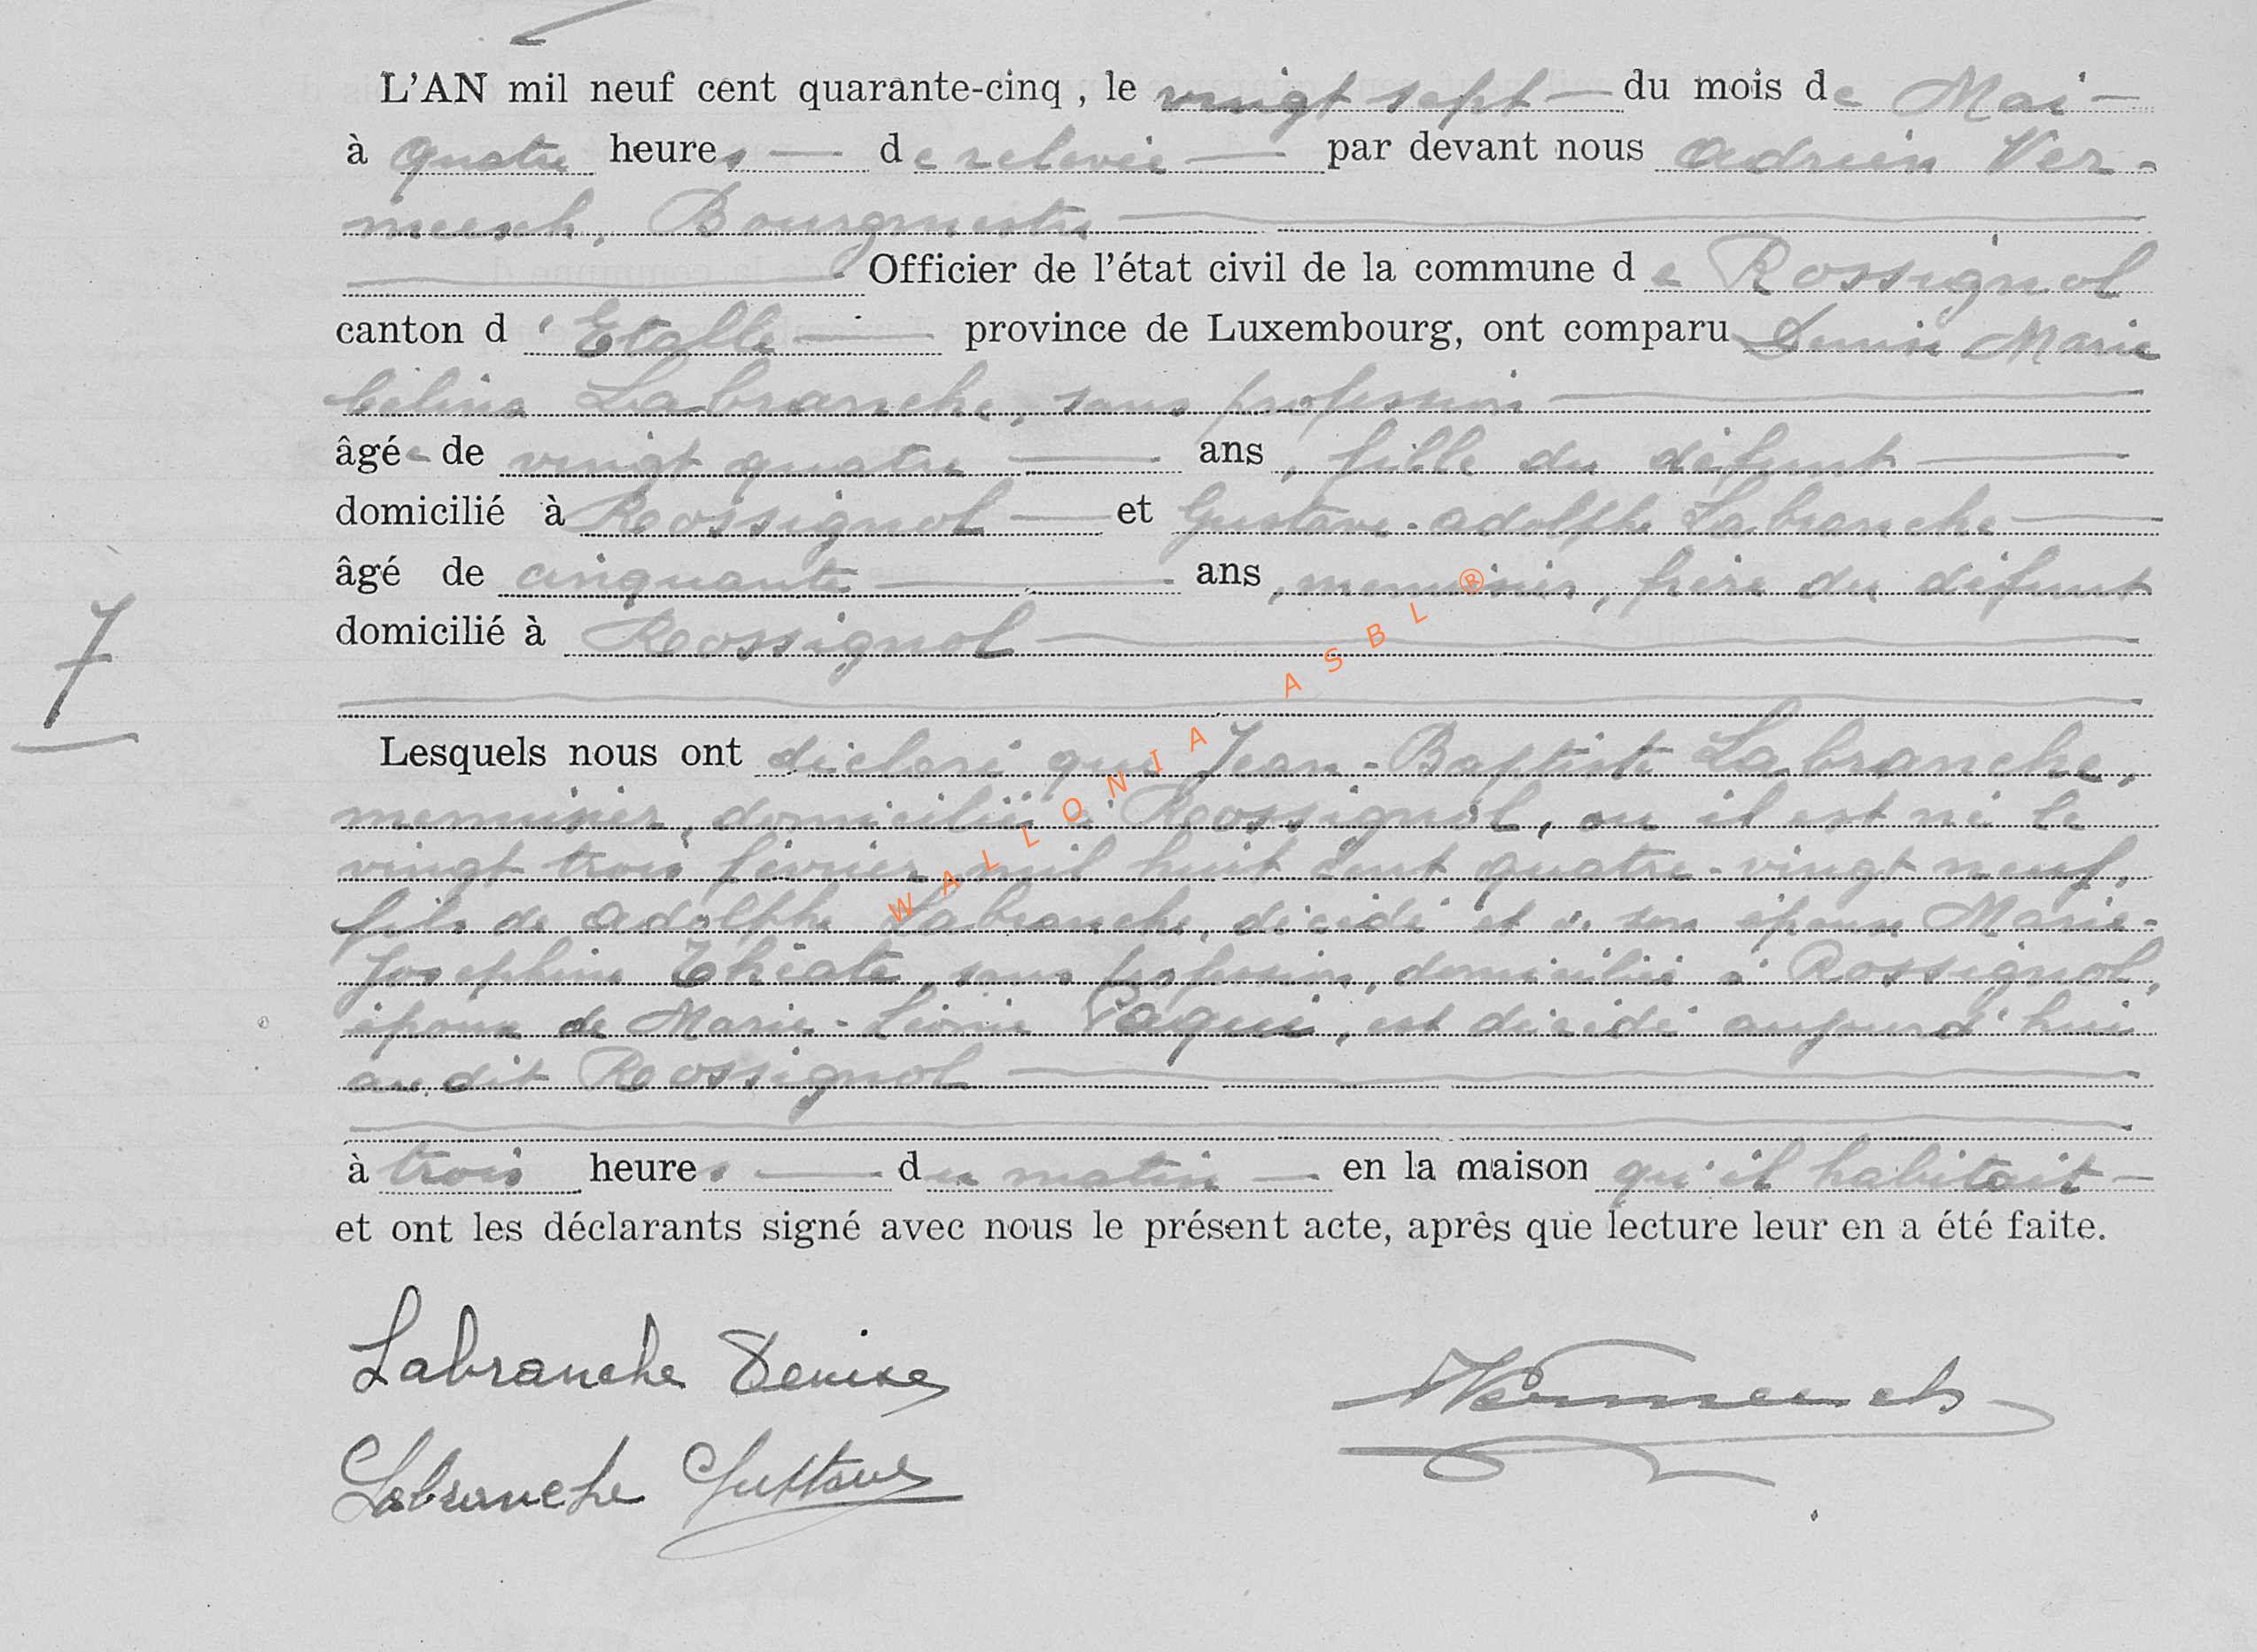 L'AN mil neuf cent quarante-cinq, le vingt sept du mois de Mai
à quatre heures de relevée par devant nous Adrien Ver-
meersch, Bourgmestre
Officier de l'état civil de la commune de Rossignol
canton d'Etalle province de Luxembourg, ont comparu Denise Marie
Célina Labranche, sans profession
âgée de vingt quatre ans, fille du défunt
domicilié à Rossignol et Gustave-Adolphe Labranche
âgé de cinquante ans, menuisier, frère du défunt
domicilié à Rossignol
7
Lesquels nous ont déclaré que Jean-Baptiste Labranche,
menuisier, domicilié à Rossignol, où il est né le
vingt trois février mil huit cent quatre-vingt neuf,
fils de Adolphe Labranche, décédé et de son épouse Marie-
Josephine Thiote, sans profession, domiciliée à Rossignol,
époux de Marie-Léonie Paquis, est décédé aujourd'hui
au dit Rossignol
à trois heures du matin en la maison qu'il habitait
et ont les déclarants signé avec nous le présent acte, après que lecture leur en a été faite.
Labranche Denise
Vermeersch
Labranche Gustave
WALLONIA ASBL ®